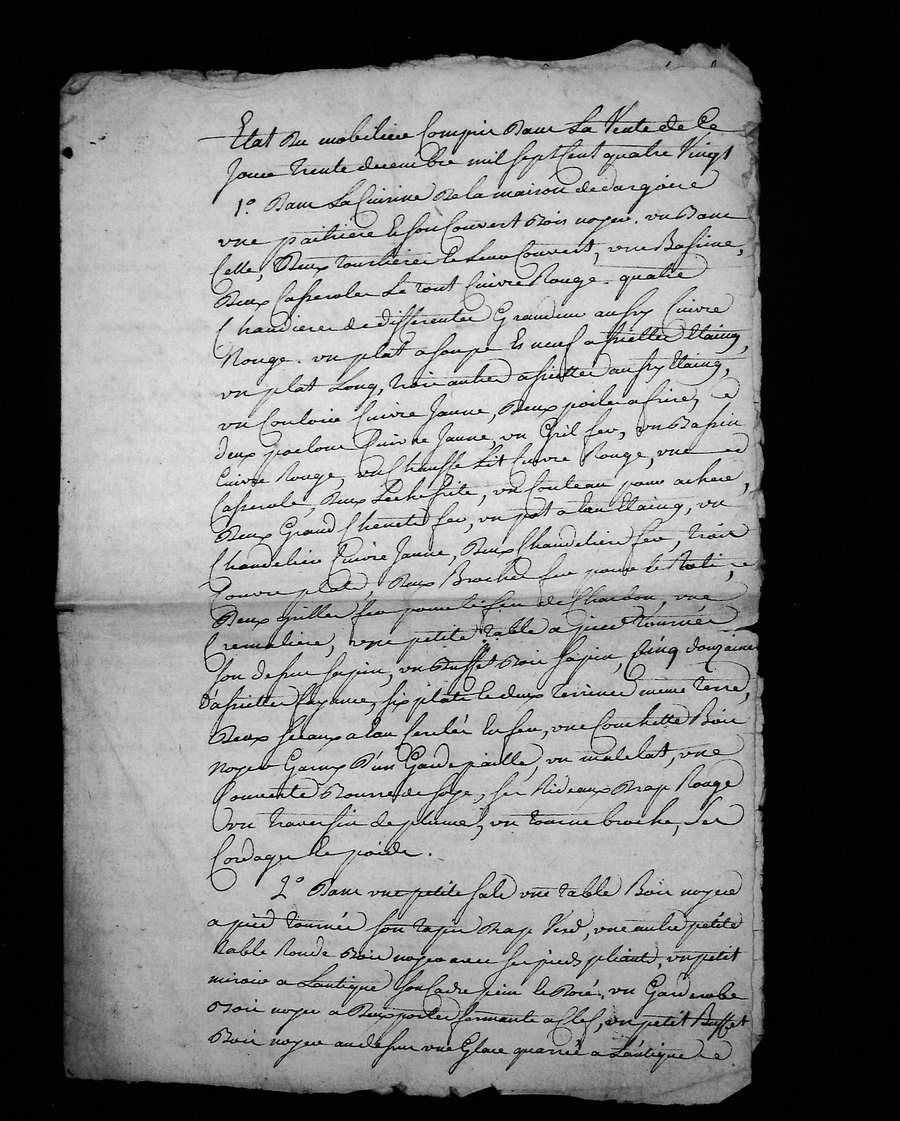 Etat Du mobiliere Compris Dans La Vente de Ce
Jour trente decembre mil sept Cent quatre Vingt
1.° Dans La Cuisine De la maison de dargoire
une paitriere Et son Couvert Bois noyer. un Banc
Celle, Deux tourtieres Et Leur Couvert, une Bassine,
Deux Casseroles Le tout Cuivre Rouge. quatre
Chaudieres de differentes Grandeur aussy Cuivre
Rouge. un plat a soupe Et neuf assiettes Etaing,
un plat Long, trois autres assiettes aussy Etaing,
un Couloir Cuivre Jaune, Deux poiles a frire, Et
deux poelons Cuivre Jaune, un Gril fer, un Bassin
Cuivre Rouge, un Chauffe Lit Cuivre Rouge, une
Casserole, Deux Lechefrite, un Couteau pour acher,
Deux Grand Chenets fer, un pot a leau Etaing, un
Chandelier Cuivre Jaune, Deux Chandeliers fer, trois
Couvre plats, Deux Broches fer pour le Roti, Et
Deux Grilles fer pour le feu de Charbon, une
Cremaliere, une petite table a pied tournés
son dessus sapin, un Buffet Bois sapin, Cinq douzaines
d'assiettes fayance, six plats Et deux terrines même terre,
Deux seaux a leau Cerclés En fer, une Couchette Bois
noyer Garny D'un Garde paille, un matelat, une
Couverte Bourre de soye, ses Rideaux Drap Rouge
un traversin de plume, un tourne broche, ses
Cordages Et poids.
2.° Dans une petite sale une table Bois noyer
a pied tournés son tapis Drap Verd, une autre petite
table Ronde Bois noyer avec ses pieds pliants, un petit
miroir a Lantique son Cadre peint Et Doré. un Garderobe
Bois noyer a Deux portes fermante a Clef, un petit Buffet
Bois noyer au dessus une Glace quarrée a Lantique Et